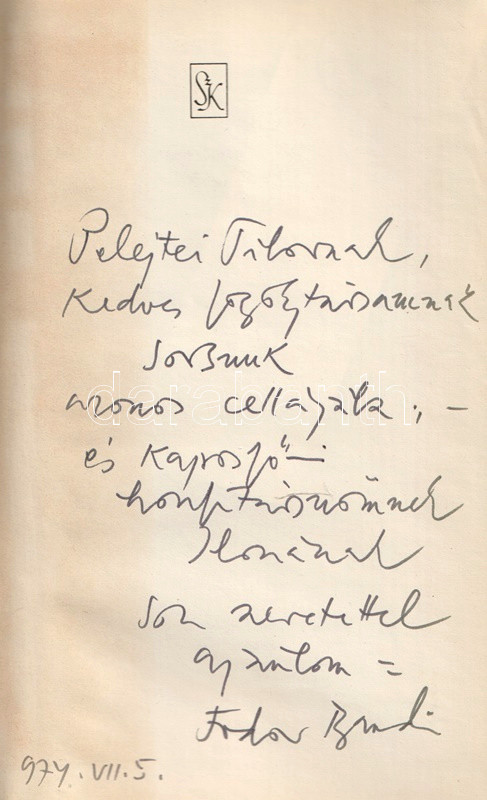 SzK
Pelejtei Tibornak,
Kedves fogolytársamnak
sorsunk
azonos cellájába, –
és Kaposfői
honfitársnőmnek
Ilonának
sok szeretettel
ajánlom =
Fodor Bandi
974. VII. 5.
darabanth